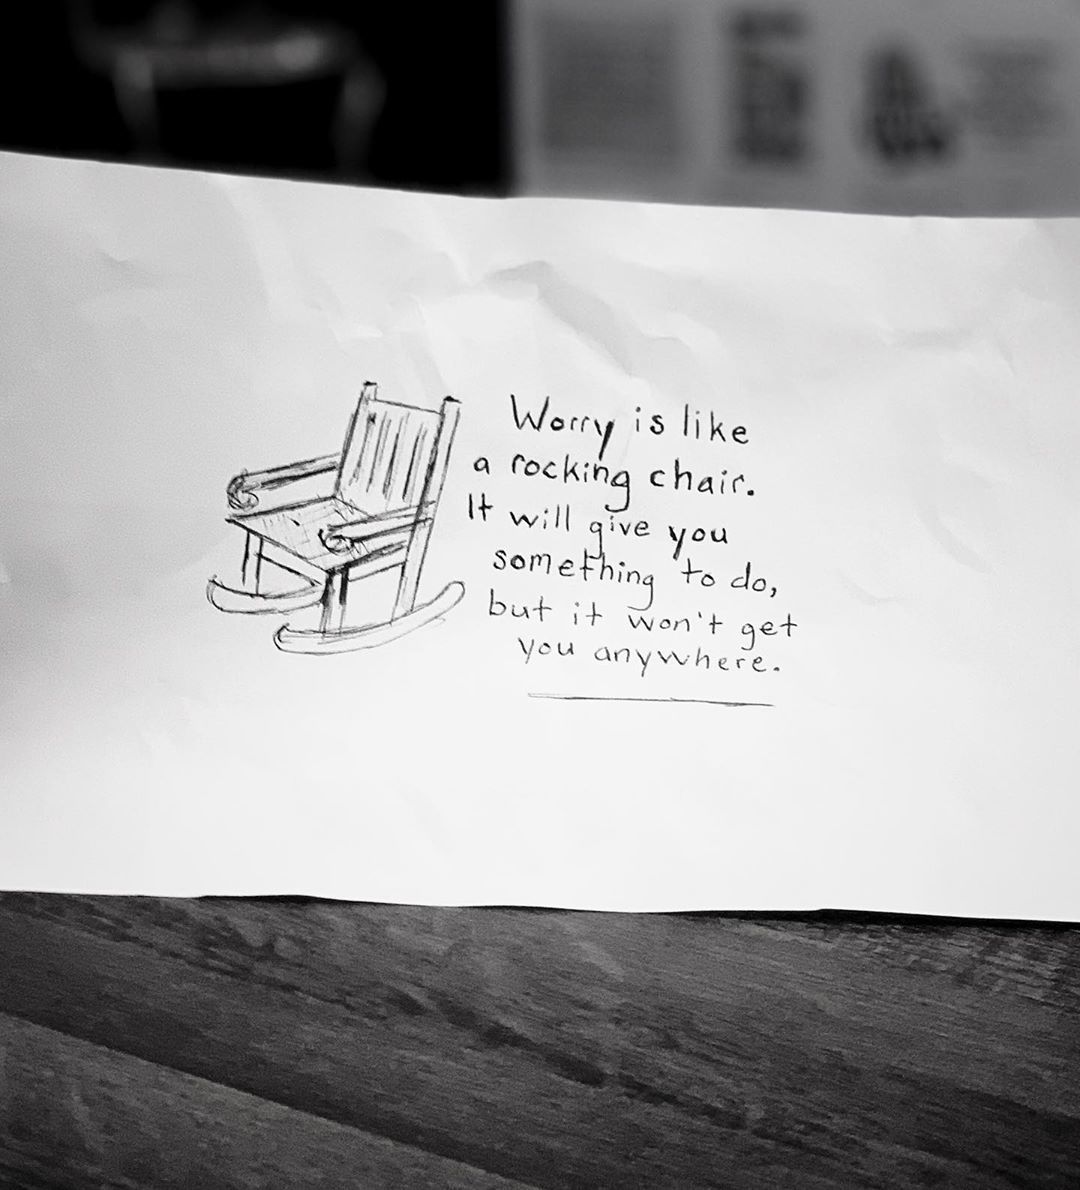 Worry is like
a rocking chair.
It will give you
something to do,
but it won't get
you anywhere.